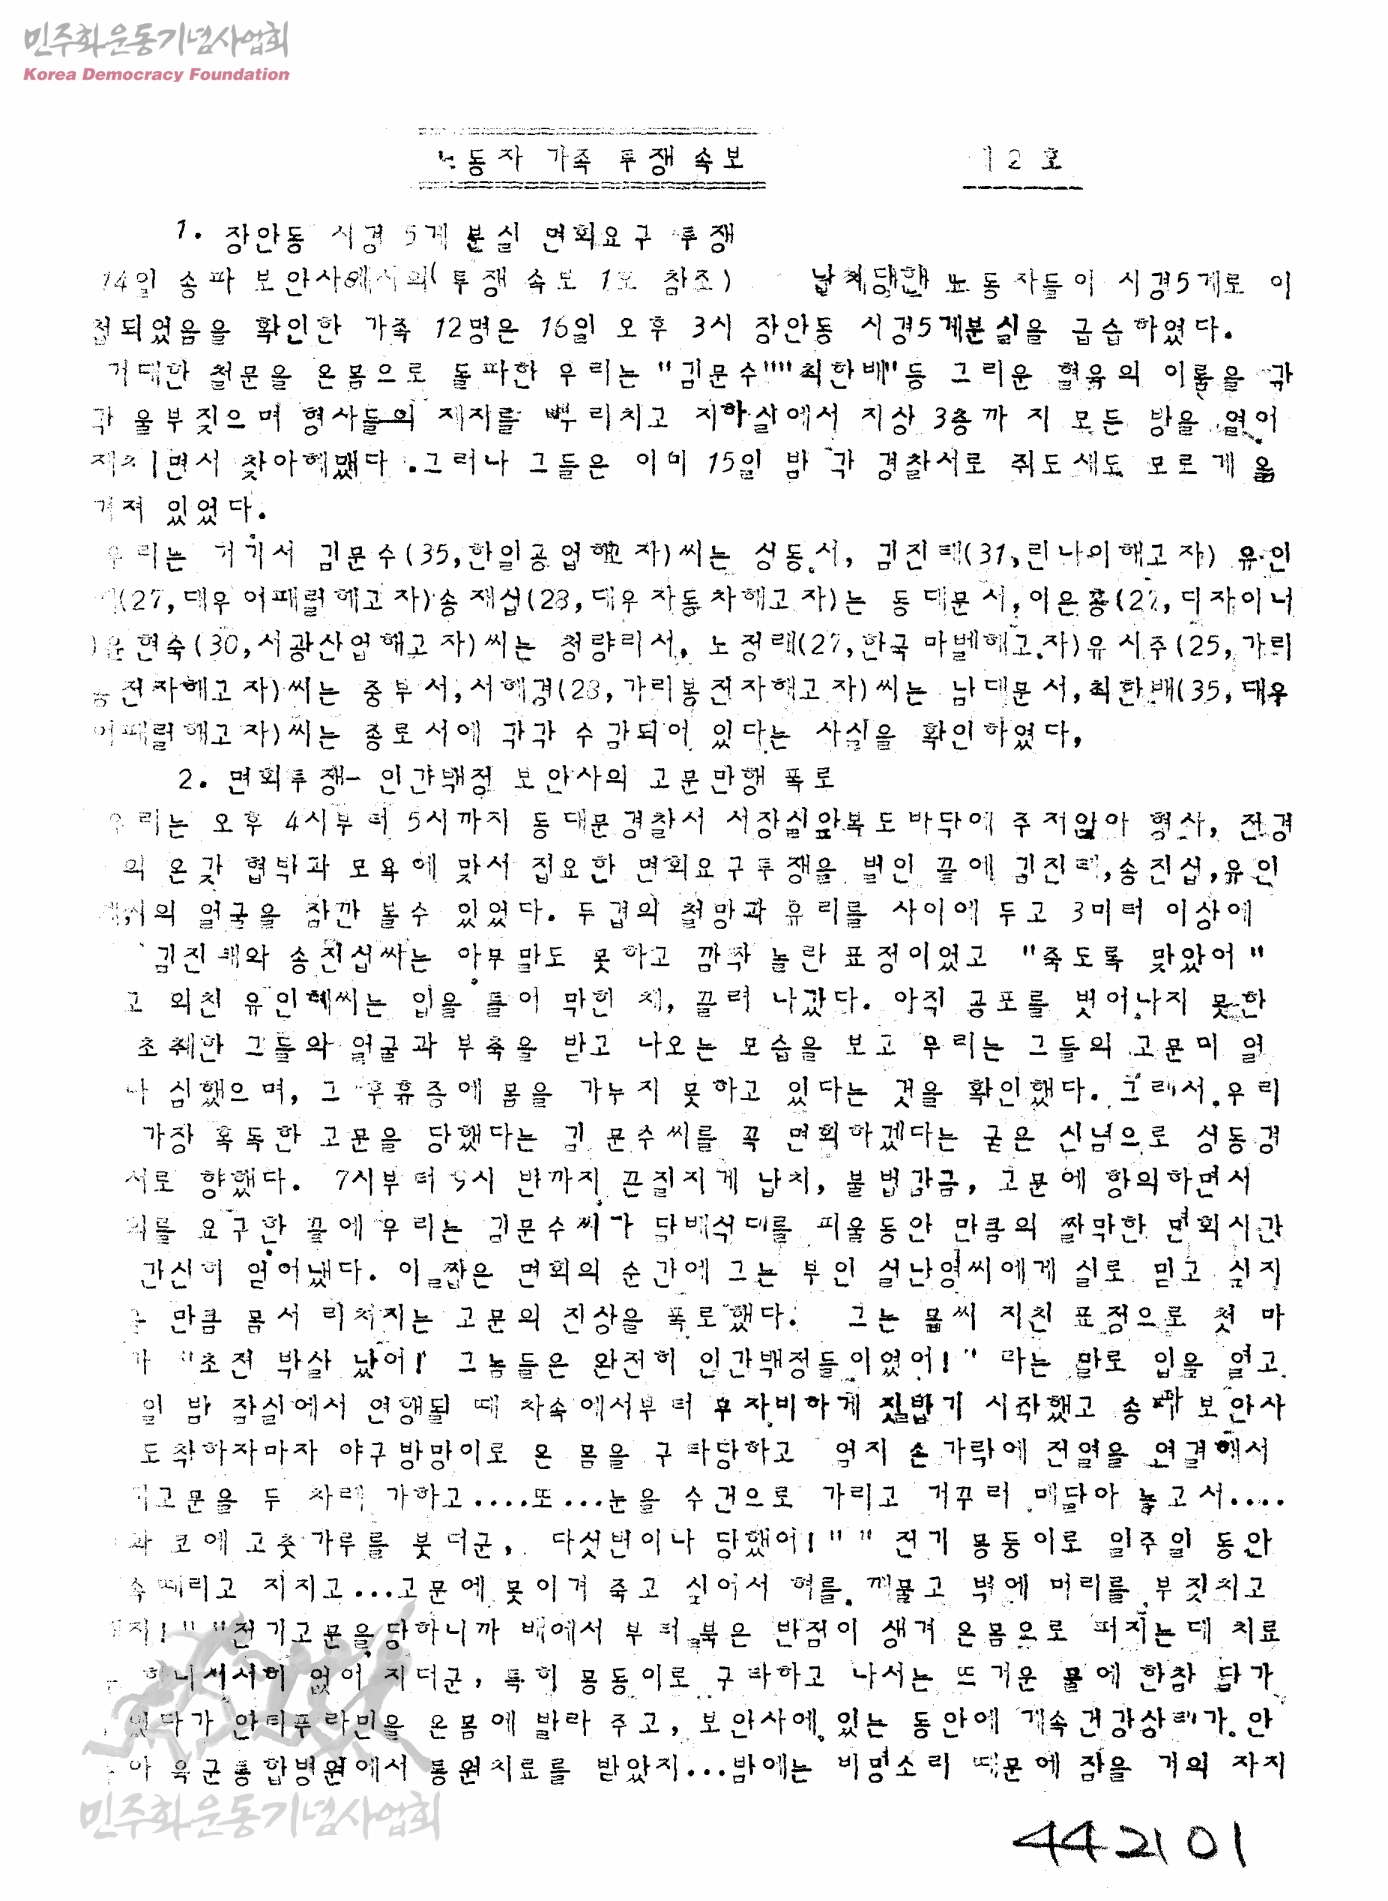 민주화운동기념사업회
Korea Democracy Foundation
노동자 가족 투쟁속보 제2호
1. 장안동 시경 5계 분실 면회요구 투쟁
14일 송파 보안사에서의(투쟁 속보 1호 참조) 납치당한 노동자들이 시경5계로 이
첩되었음을 확인한 가족 12명은 16일 오후 3시 장안동 시경5계분실을 급습하였다.
거대한 철문을 온몸으로 돌파한 우리는 "김문수""최한배"등 그리운 혈육의 이름을 각
각 울부짖으며 형사들의 제지를 뿌리치고 지하실에서 지상 3층까지 모든 방을 열어
제치면서 찾아헤맸다.그러나 그들은 이미 15일 밤 각 경찰서로 쥐도새도 모르게 옮
겨져 있었다.
우리는 거기서 김문수(35,한일공업해고자)씨는 성동서, 김진태(31,린나이해고자) 유인
(27,대우어패럴해고자)송재섭(28,대우자동차해고자)는 동대문서,이은홍( 디자이너
)윤현숙(30,서광산업해고자)씨는 청량리서, 노정래(27,한국 마벨해고자)유시주(25,가리
봉전자해고자)씨는 중부서,서혜경(28,가리봉전자해고자)씨는 남대문서,최한배(35,대우
어패럴해고자)씨는 종로서에 각각 수감되어 있다는 사실을 확인하였다,
2. 면회투쟁- 인간백정 보안사의 고문만행 폭로
우리는 오후 4시부터 5시까지 동대문경찰서 서장실앞복도바닥에 주저앉아 형사, 전경
의 온갖 협박과 모욕에 맞서 집요한 면회요구투쟁을 벌인 끝에 김진태,송진섭,유인
씨의 얼굴을 잠깐 볼수 있었다. 두겹의 철망과 유리를 사이에 두고 3미터 이상에
김진태와 송진섭씨는 아무말도 못하고 깜짝 놀란 표정이었고 "죽도록 맞았어"
고 외친 유인혜씨는 입을 틀어 막힌 채, 끌려 나갔다. 아직 공포를 벗어나지 못한
초췌한 그들의 얼굴과 부축을 받고 나오는 모습을 보고 우리는 그들의 고문이 얼
나 심했으며, 그 후휴증에 몸을 가누지 못하고 있다는 것을 확인했다. 그래서 우리
가장 혹독한 고문을 당했다는 김 문수씨를 꼭 면회하겠다는 굳은 신념으로 성동경
서로 향했다. 7시부터 9시 반까지 끈질지게 납치, 불법감금, 고문에 항의하면서
회를 요구한 끝에 우리는 김문수씨가 담배석대를 피울동안 만큼의 짤막한 면회시간
간신히 얻어냈다. 이 짧은 면회의 순간에 그는 부인 설난영씨에게 실로 믿고 싶지
만큼 몸서리쳐지는 고문의 진상을 폭로했다. 그는 몹씨 지친 표정으로 첫 마
가 "초전 박살 났어! 그놈들은 완전히 인간백정들이였어!" 라는 말로 입을 열고
일 밤 잠실에서 연행될 때 차속에서부터 무자비하게 짓밟기 시작했고 송파 보안사
도착하자마자 야구방망이로 온 몸을 구타당하고 엄지 손가락에 전열을 연결해서
기고문을 두 차례 가하고....또...눈을 수건으로 가리고 거꾸러 매달아 놓고서.....
과 코에 고춧가루를 붓더군, 다섯번이나 당했어!"" 전기 몽둥이로 일주일 동안
속때리고 지지고...고문에 못이겨 죽고 싶어서 혀를 깨물고 벽에 머리를 부짓치고
지!""전기고문을당하니까 배에서 부터 붉은 반점이 생겨 온몸으로 퍼지는데 치료
하니 서서히 없어 지더군, 특히 몽둥이로 구타하고 나서는 뜨거운 물에 한참 담가
있다가 안티푸라민을 온몸에 발라 주고, 보안사에 있는 동안에 계속건강상태가 안
아 육군통합병원에서 통원치료를 받았지...밤에는 비명소리 때문에 잠을 거의 자지
민주화운동기념사업회
442101